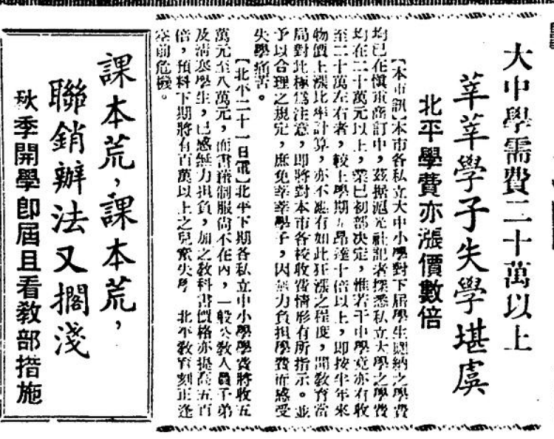 大中學需費二十萬以上
莘莘學子失學堪虞
北平學費亦漲價數倍
【本市訊】本市各私立大中小學對下屆學生應納之學費
均已在愼重商訂中，茲據滬光社記者探悉私立大學之學費
均在二十萬元以上，業已初步決定，惟若干中學竟亦有收
至二十萬左右者，較上學期昂達十倍以上，即按半年來
物價上漲比率計算，亦不應有如此狂漲之程度，聞教育當
局對此極爲注意，即將對本市各校收費情形有所指示。並
予以合理之規定，庶免莘莘學子，因無力負担學費而感受
失學痛苦。
【北平二十一日電】北平下期各私立中小學學費將收五
萬元至八萬元，而書籍制服尚不在內，一般公教人員子弟
及清寒學生，已感無力担負，加之教科書價格亦提高五百
倍，預料下期將有百萬以上之兒童失學。北平教育刻正逢
空前危機。
課本荒，課本荒，
聯銷辦法又擱淺
秋季開學卽屆且看教部措施